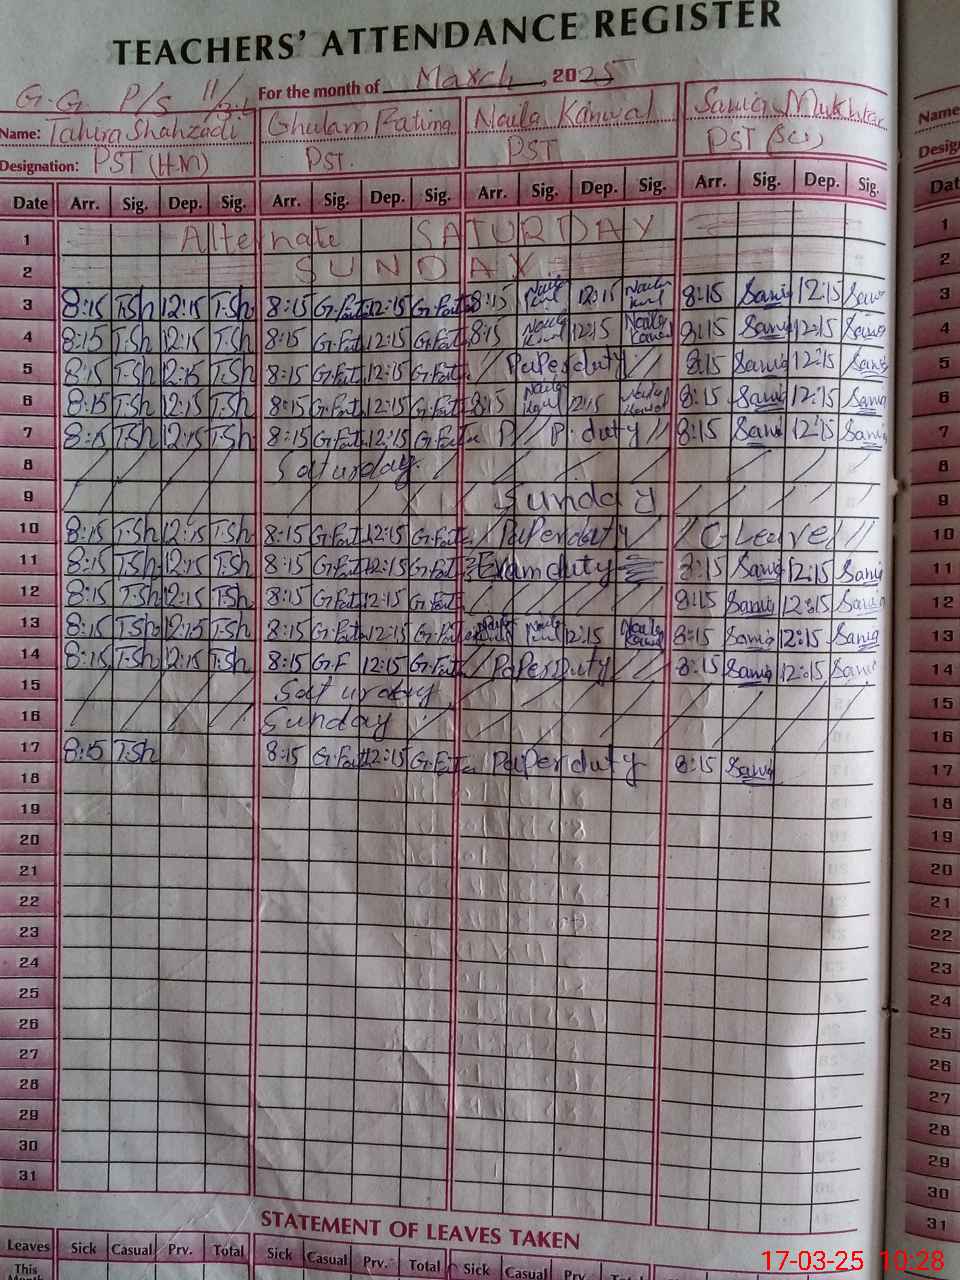 TEACHERS' ATTENDANCE REGISTER
For the month of March, 2025
G.G. P/S 11/
Name: Tahira Shahzadi Ghulam Fatima Naila Kanwal Sania Mukhtar Name
Designation: PST (H.M) PST. PST PST Design
Date Arr. Sig. Dep. Sig. Arr. Sig. Dep. Sig. Arr. Sig. Dep. Sig. Arr. Sig. Dep. Sig. Dat
1 Alternate SATURDAY 1
2 SUNDAY 2
3 8:15 T.Sh 12:15 T.Sh 8:15 G.Fati 12:15 G.Fati 8:15 Naila Kanwal 12:15 Naila Kanwal 8:15 Sania 12:15 Sania 3
4 8:15 T.Sh 12:15 T.Sh 8:15 G.Fati 12:15 G.Fati 8:15 Naila Kanwal 12:15 Naila Kanwal 8:15 Sania 12:15 Sania 4
5 8:15 T.Sh 12:15 T.Sh 8:15 G.Fati 12:15 G.Fati // Paper duty // 8:15 Sania 12:15 Sania 5
6 8:15 T.Sh 12:15 T.Sh 8:15 G.Fati 12:15 G.Fati 8:15 Naila Kanwal 12:15 Naila Kanwal 8:15 Sania 12:15 Sania 6
7 8:15 T.Sh 12:15 T.Sh 8:15 G.Fati 12:15 G.Fati P // P. duty // 8:15 Sania 12:15 Sania 7
8 Saturday 8
9 Sunday 9
10 8:15 T.Sh 12:15 T.Sh 8:15 G.Fati 12:15 G.Fati Paper duty // C-Leave // 10
11 8:15 T.Sh 12:15 T.Sh 8:15 G.Fati 12:15 G.Fati Exam duty 8:15 Sania 12:15 Sania 11
12 8:15 T.Sh 12:15 T.Sh 8:15 G.Fati 12:15 G.Fati 8:15 Sania 12:15 Sania 12
13 8:15 T.Sh 12:15 T.Sh 8:15 G.Fati 12:15 G.Fati Naila Kanwal 12:15 Naila Kanwal 8:15 Sania 12:15 Sania 13
14 8:15 T.Sh 12:15 T.Sh 8:15 G.F 12:15 G.Fati // Paper Duty // 8:15 Sania 12:15 Sania 14
15 Saturday 15
16 Sunday 16
17 8:15 T.Sh 8:15 G.Fati 12:15 G.Fati Paper duty 8:15 Sania 17
18 18
19 19
20 20
21 21
22 22
23 23
24 24
25 25
26 26
27 27
28 28
29 29
30 30
31 31
STATEMENT OF LEAVES TAKEN
Leaves Sick Casual Prv. Total Sick Casual Prv. Total Sick Casual Prv
This
17-03-25 10:28